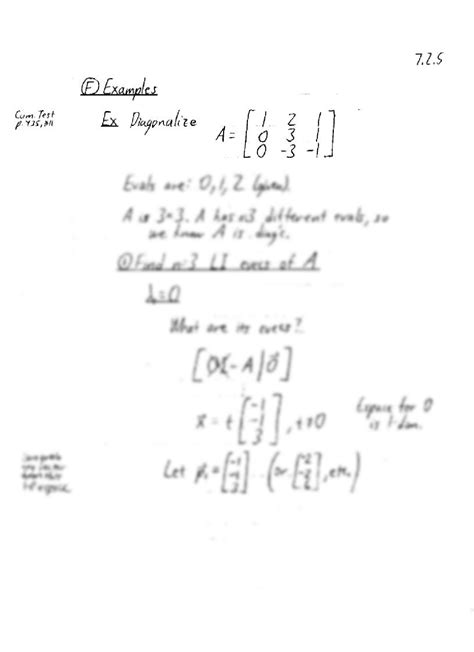 7.2.5
(F) Examples
Cum. Test
Ex Diagonalize A = [1 2 1; 0 3 1; 0 -3 -1]
Evals are: 0, 1, 2 (given).
A is 3×3. A has n=3 different evals, so
we know A is diag'e.
① Find n=3 LI evecs of A
λ=0
What are its evecs?
[0I - A | 0]
x = t [-1; -1; 3], t≠0
Espace for 0
is 1-dim.
Let p₁ = [-1; -1; 3] (or [-2; -2; 6], etc.)